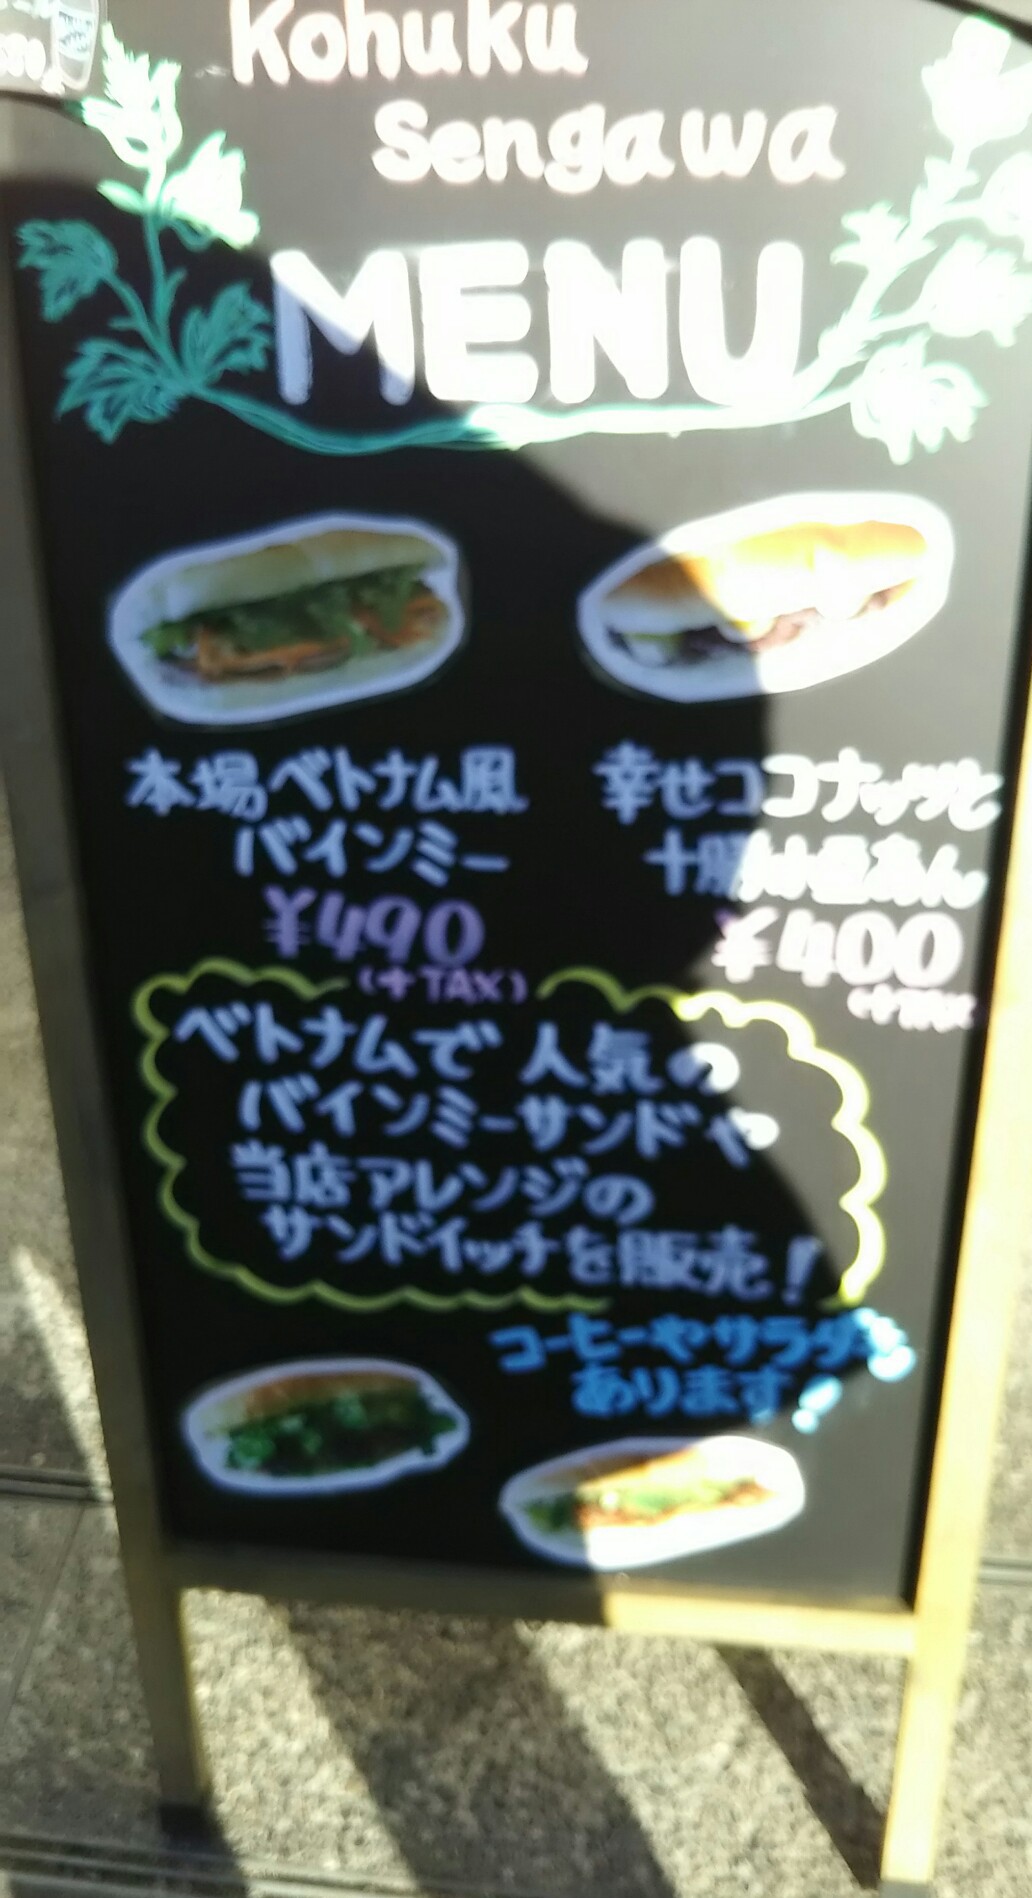 Kohuku
Sengawa
MENU
本場ベトナム風
バインミー
¥490
(+TAX)
幸せココナッツと
十勝小豆あん
¥400
(+TAX)
ベトナムで人気の
バインミーサンドや
当店アレンジの
サンドイッチを販売!
コーヒーやサラダも
あります!